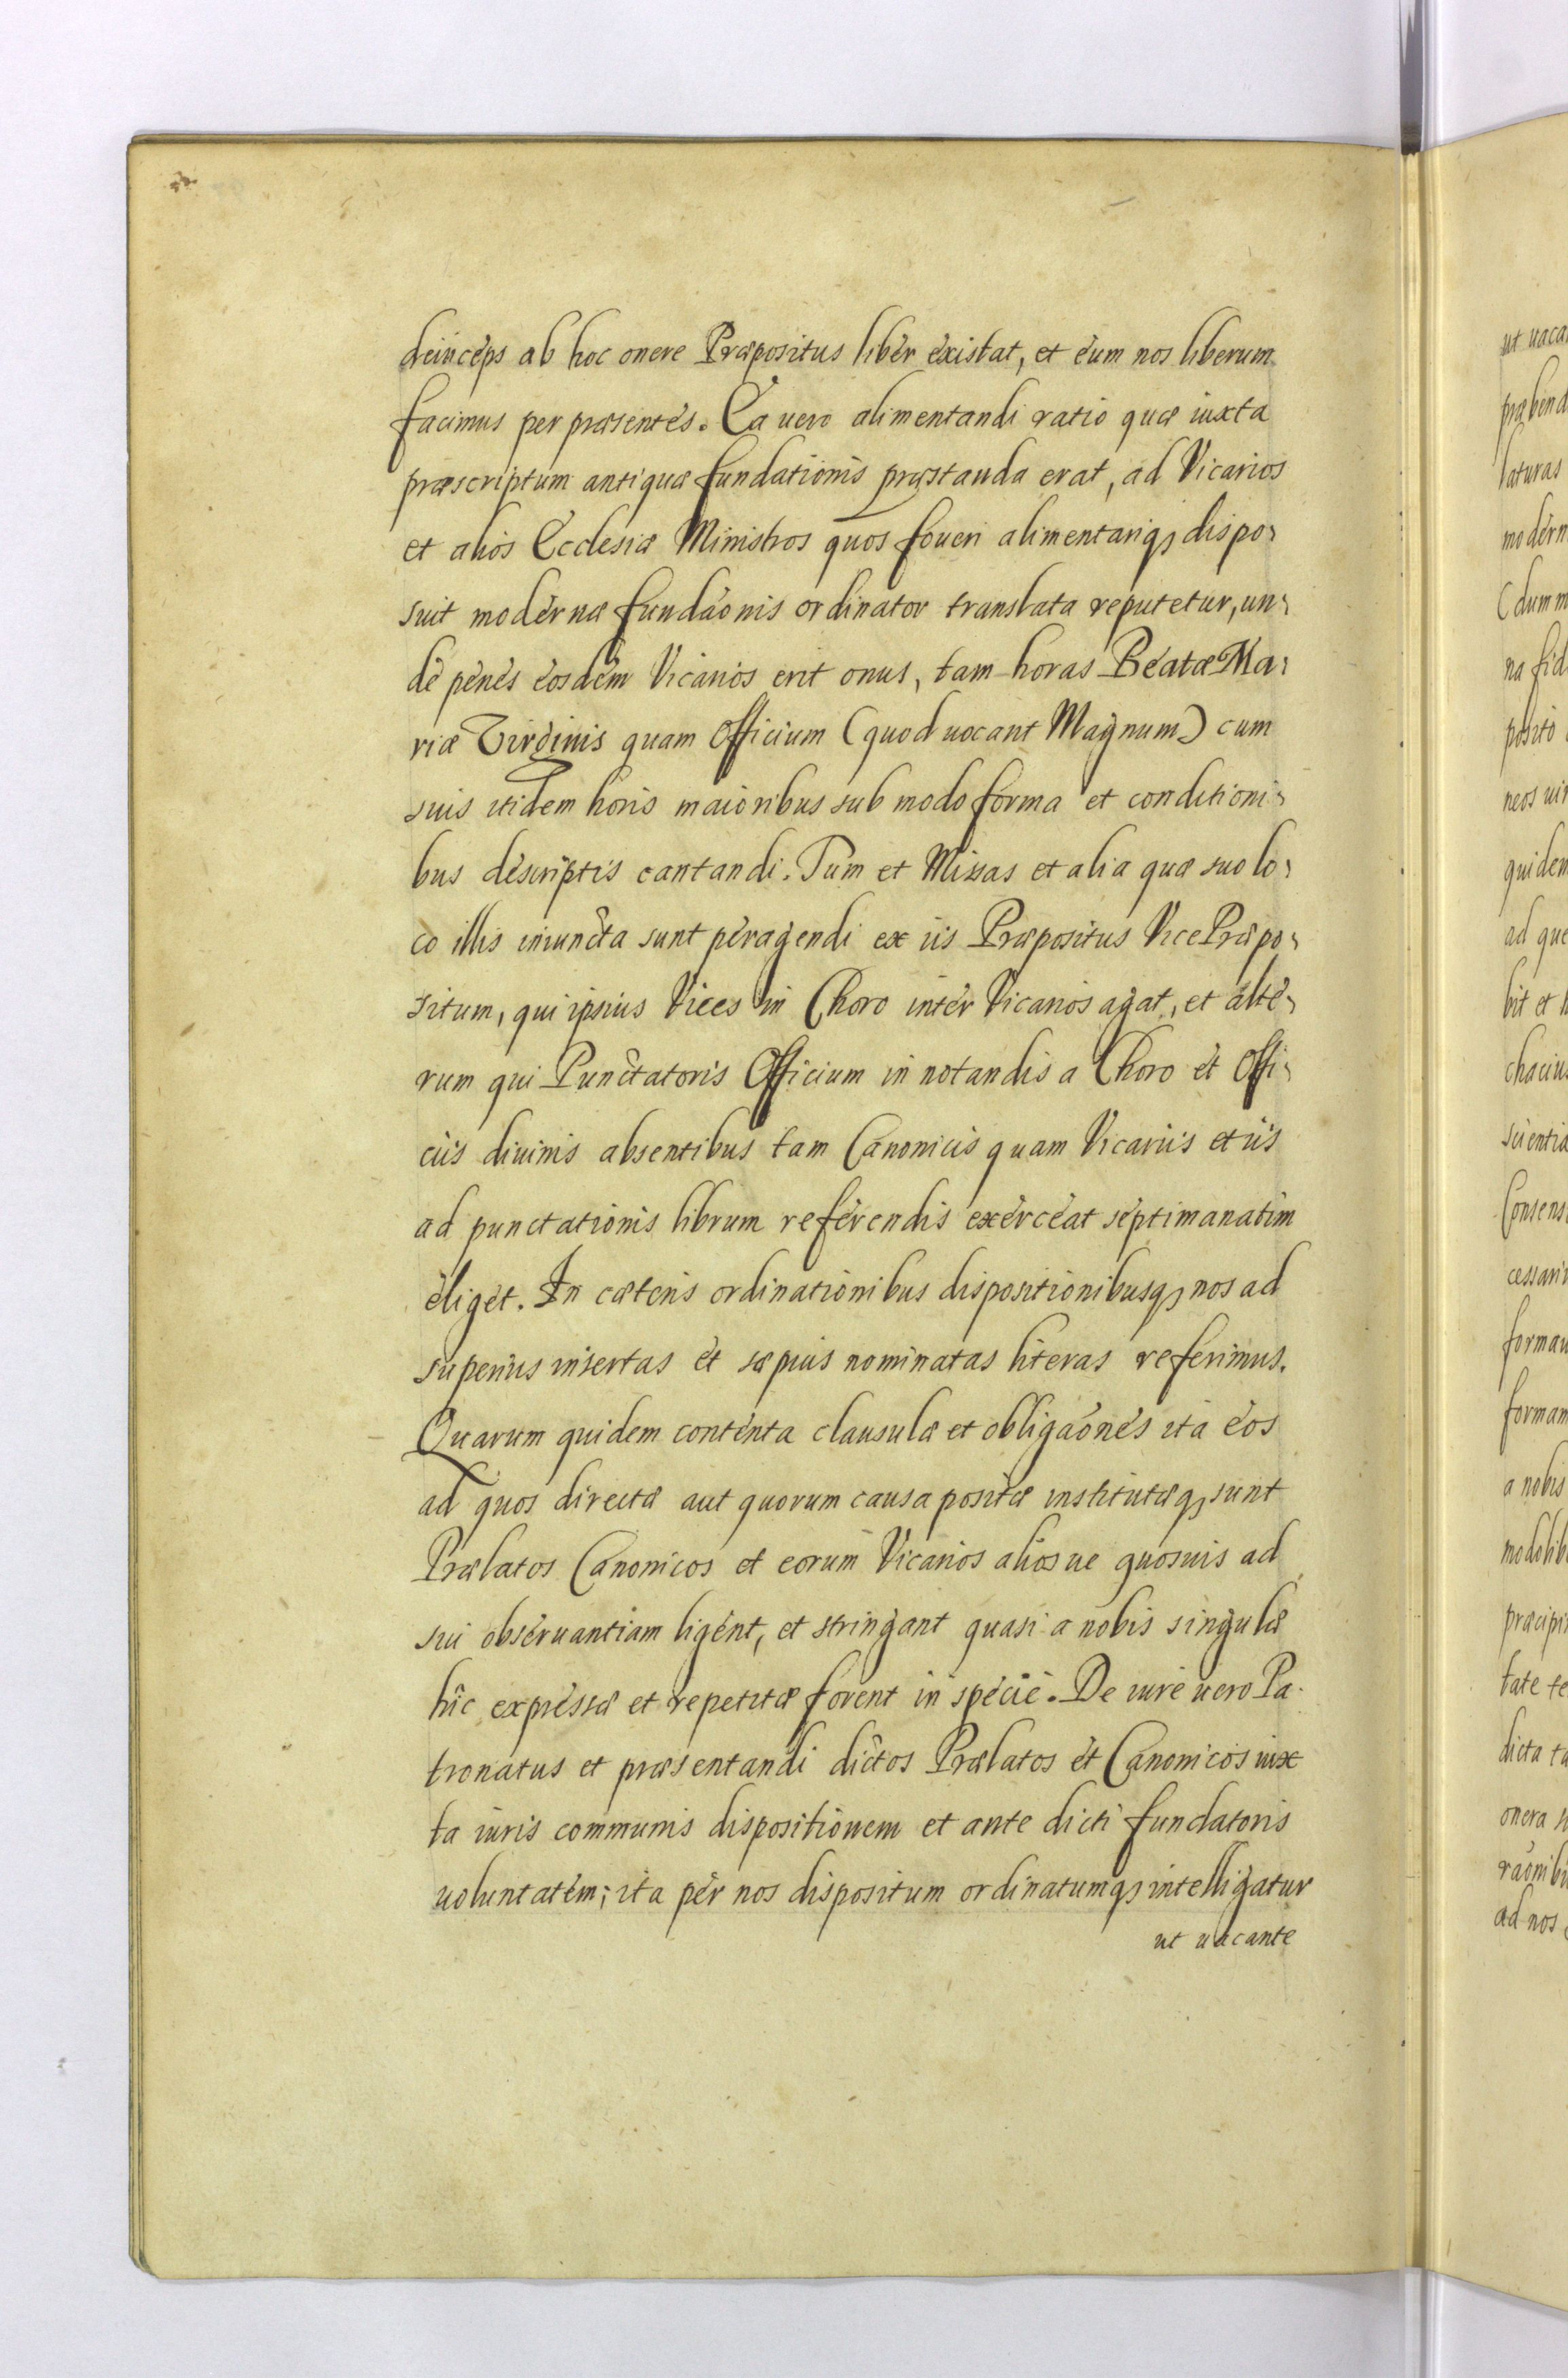 deinceps ab hoc onere Præpositus liber existat, et eum nos liberum
facimus per præsentes. Ea uero alimentandi ratio quæ iuxta
præscriptum antiquæ fundationis præstanda erat, ad Vicarios
et alios Ecclesiæ Ministros quos foueri alimentariq; dispo-
suit modernæ fundãonis ordinator translata reputetur, un-
de penes eosdem Vicarios erit onus, tam horas Beatæ Ma-
riæ Virginis quam Officium (quod uocant Magnum) cum
suis itidem horis maioribus sub modo forma et conditioni-
bus descriptis cantandi. Tum et Missas et alia quæ suo lo-
co illis iniuncta sunt peragendi ex iis Præpositus Vice Præpo-
situm, qui ipsius Vices in Choro inter Vicarios agat, et alte-
rum qui Punctatoris Officium in notandis a Choro et Offi-
ciis diuinis absentibus tam Canonicis quam Vicariis et iis
ad punctationis librum referendis exerceat septimanatim
eliget. In cæteris ordinationibus dispositionibusq; nos ad
superius insertas et sæpius nominatas literas referimus.
Quarum quidem contenta clausulæ et obligaõnes ita eos
ad quos directæ aut quorum causa positæ institutæq; sunt
Prælatos Canonicos et eorum Vicarios aliosue quosuis ad
sui obseruantiam ligent, et stringant quasi a nobis singulæ
hîc expressæ et repetitæ forent in specie. De iure uero Pa-
tronatus et præsentandi dictos Prælatos et Canonicos iux
ta iuris communis dispositionem et ante dicti fundatoris
uoluntatem; ita per nos dispositum ordinatumq; intelligatur
ut uacante